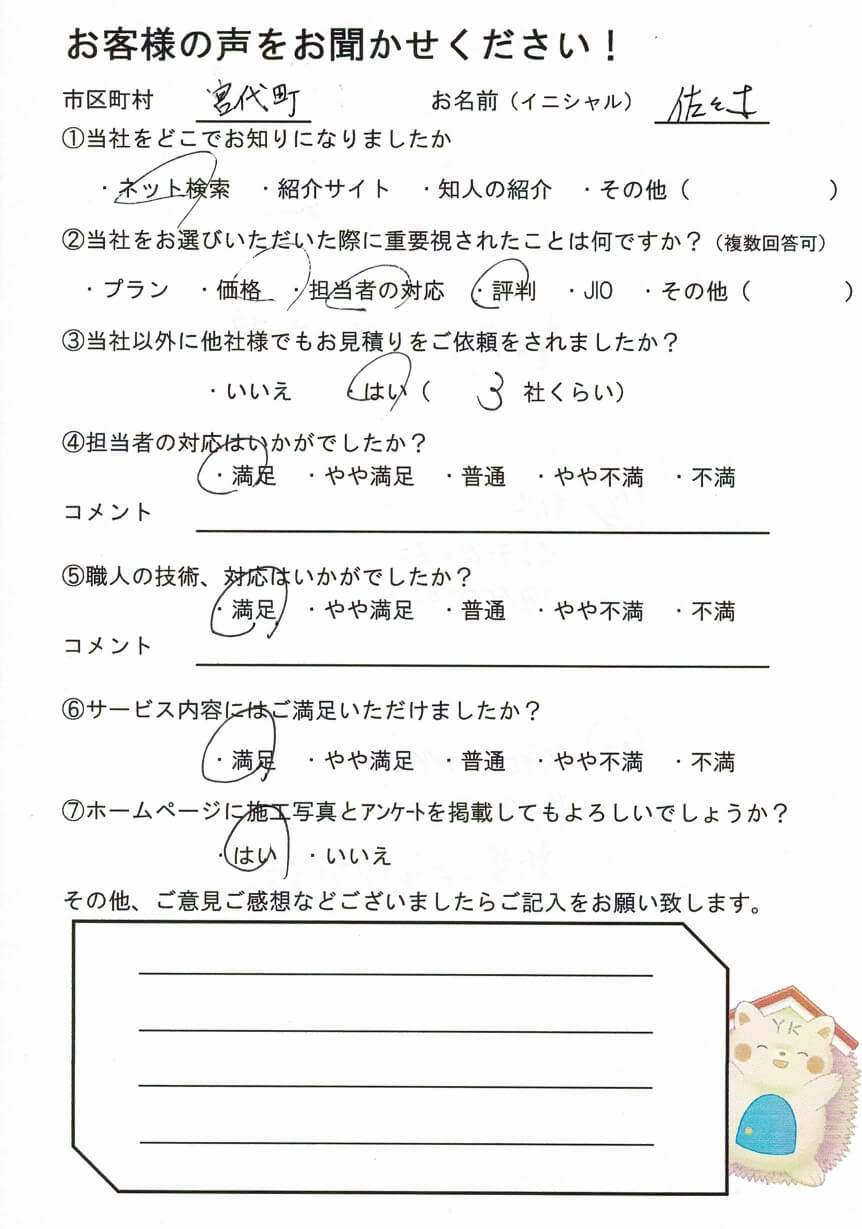 お客様の声をお聞かせください！
市区町村 宮代町 お名前（イニシャル） 佐々木
①当社をどこでお知りになりましたか
・ネット検索 ・紹介サイト ・知人の紹介 ・その他（ ）
②当社をお選びいただいた際に重要視されたことは何ですか？（複数回答可）
・プラン ・価格 ・担当者の対応 ・評判 ・JIO ・その他（ ）
③当社以外に他社様でもお見積りをご依頼をされましたか？
・いいえ ・はい（ 3 社くらい）
④担当者の対応はいかがでしたか？
・満足 ・やや満足 ・普通 ・やや不満 ・不満
コメント
⑤職人の技術、対応はいかがでしたか？
・満足 ・やや満足 ・普通 ・やや不満 ・不満
コメント
⑥サービス内容にはご満足いただけましたか？
・満足 ・やや満足 ・普通 ・やや不満 ・不満
⑦ホームページに施工写真とｱﾝｹｰﾄを掲載してもよろしいでしょうか？
・はい ・いいえ
その他、ご意見ご感想などございましたらご記入をお願い致します。
YK